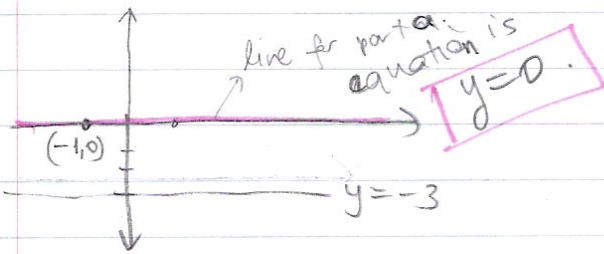 line for part a.
equation is
y=0.
(-1,0)
y=-3